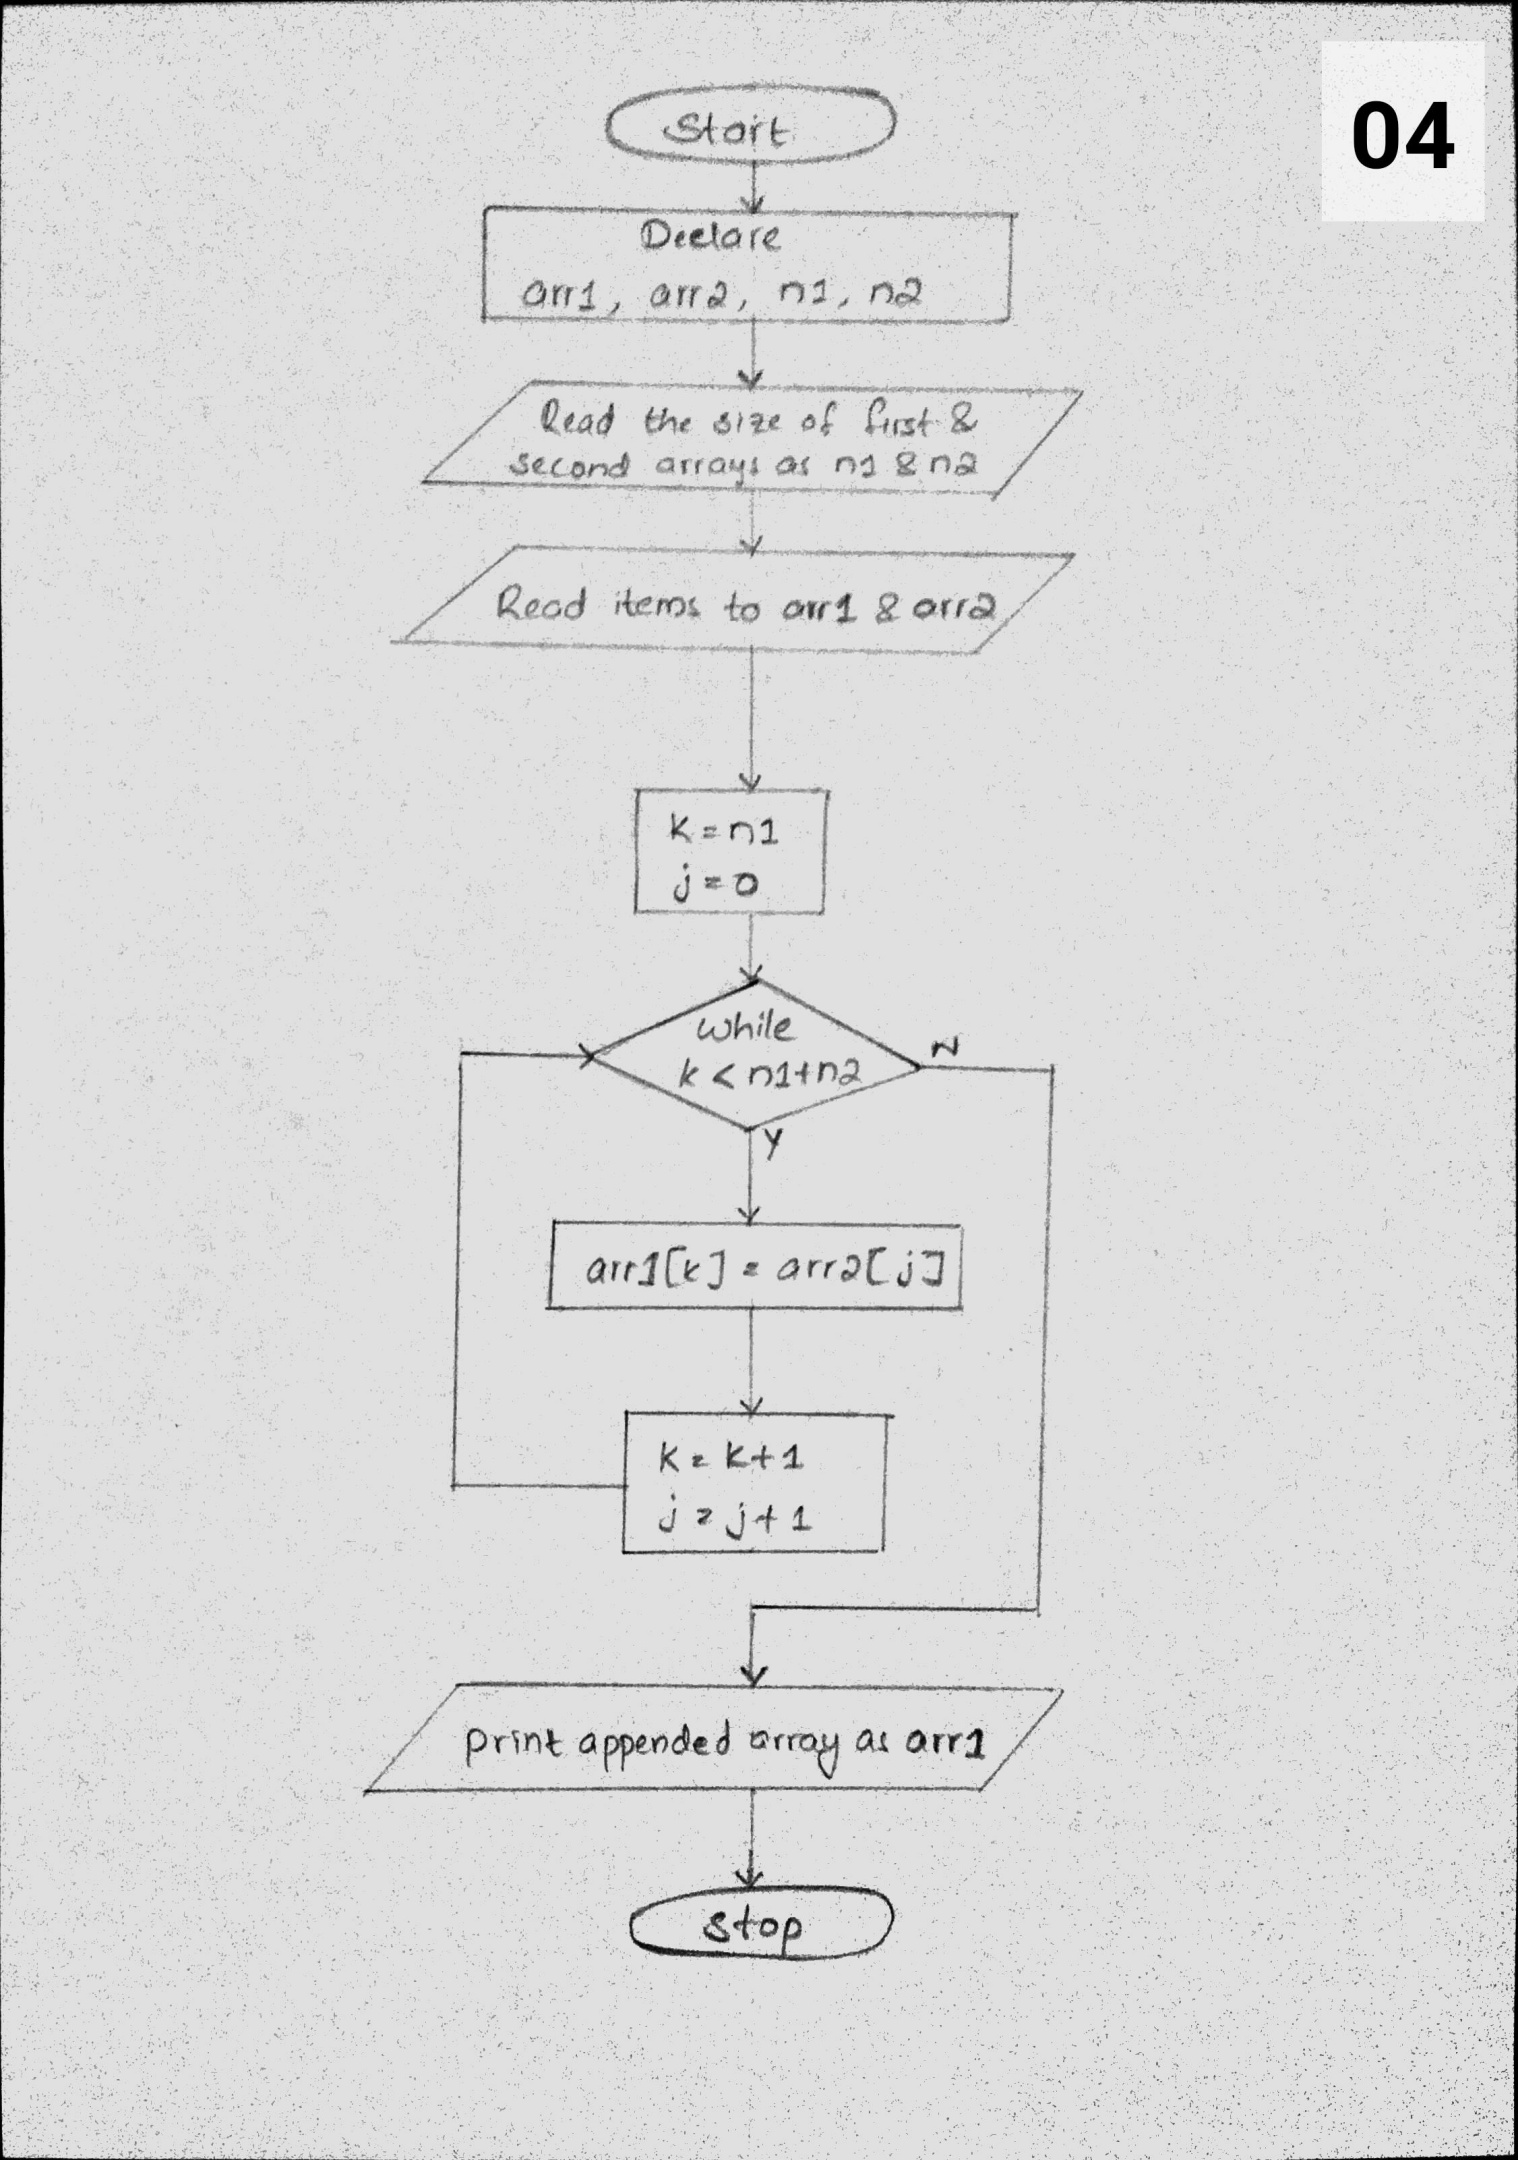 04
Start
Declare
arr1, arr2, n1, n2
Read the size of first &
second arrays as n1 & n2
Read items to arr1 & arr2
k = n1
j = 0
while
k < n1+n2
N
Y
arr1[k] = arr2[j]
k = k+1
j = j+1
print appended array as arr1
stop